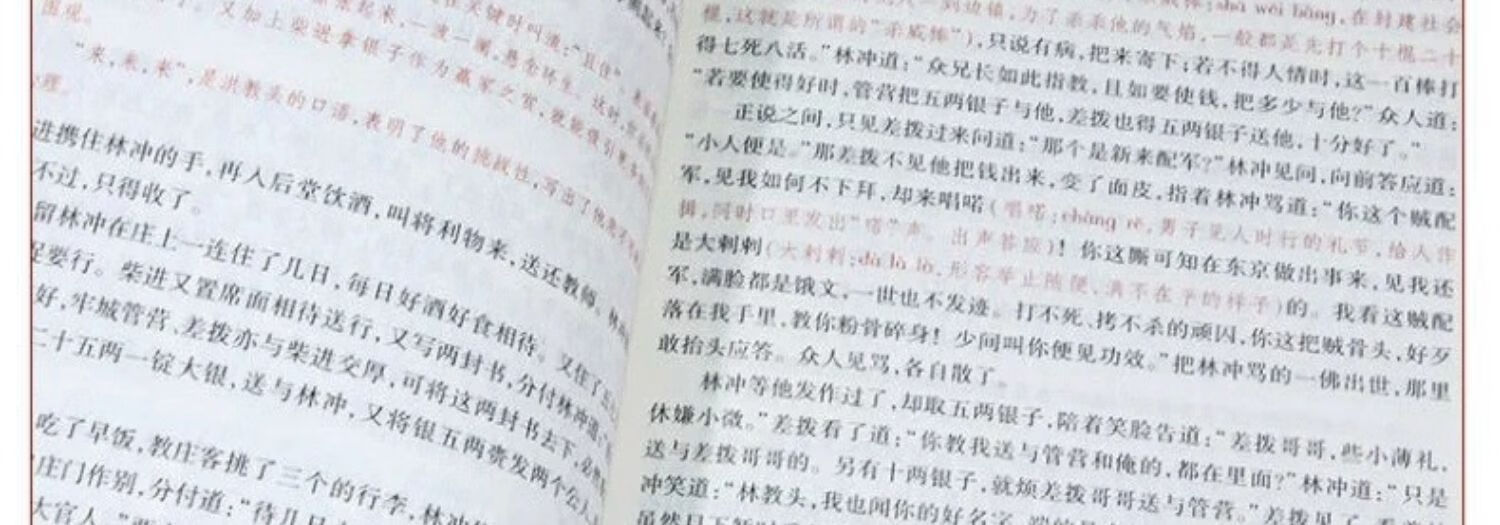 在关键时叫道:“且住”。
又加上柴进拿银子作为赢家之赏,就能吸引
“来,来,来”,是洪教头的口语,表明了他的挑战性,写出了他
心理。
进携住林冲的手,再入后堂饮酒,叫将利物来,送还教师。
不过,只得收了。
留林冲在庄上一连住了几日,每日好酒好食相待。又住了
促要行。柴进又置席面相待送行,又写两封书,分付林冲道:
好,牢城管营、差拨亦与柴进交厚,可将这两封书去下,必然
二十五两一锭大银,送与林冲,又将银五两赍发两个公人
吃了早饭,教庄客挑了三个的行李,林冲
庄门作别,分付道:“待几日
大官人。”
sha wei bang,在封建社会
到边镇,为了杀杀他的气焰,一般都是先打个十棍二十
棍,这就是所谓的“杀威棒”),只说有病,把来寄下;若不得人情时,这一百棒打
得七死八活。”林冲道:“众兄长如此指教,且如要使钱,把多少与他?”众人道:
“若要使得好时,管营把五两银子与他,差拨也得五两银子送他,十分好了。”
正说之间,只见差拨过来问道:“那个是新来配军?”林冲见问,向前答应道:
“小人便是。”那差拨不见他把钱出来,变了面皮,指着林冲骂道:“你这个贼配
军,见我如何不下拜,却来唱喏(唱喏:chàng rě,男子见人时行的礼节,给人作
揖,同时口里发出“喏”声。出声答应)!你这厮可知在东京做出事来,见我还
是大剌剌(大剌剌:dà là là,形容举止随便、满不在乎的样子)的。我看这贼配
军,满脸都是饿文,一世也不发迹。打不死、拷不杀的顽囚,你这把贼骨头,好歹
落在我手里,教你粉骨碎身!少间叫你便见功效。”把林冲骂的一佛出世,那里
敢抬头应答。众人见骂,各自散了。
林冲等他发作过了,却取五两银子,陪着笑脸告道:“差拨哥哥,些小薄礼,
休嫌小微。”差拨看了道:“你教我送与管营和俺的,都在里面?”林冲道:“只是
送与差拨哥哥的。另有十两银子,就烦差拨哥哥送与管营。”差拨见了,
冲笑道:“林教头,我也闻你的好名字,端的是
虽然目下暂时